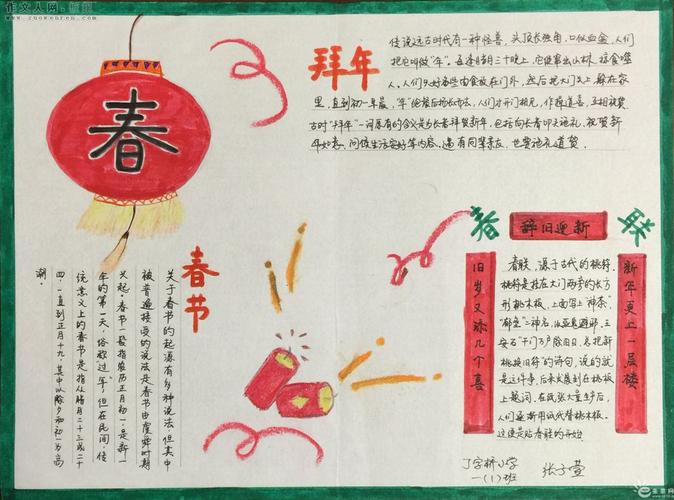 作文人网
www.zuowenren.com
春
拜年
传说远古时代有一种怪兽，头顶长独角，口似血盆，人们
把它叫做“年”。每逢腊月三十晚上，它便窜出山林，掠食噬
人。人们只好备些肉食放在门外，然后把大门关上，躲在家
里，直到初一早晨，“年”饱餐后扬长而去，人们才开门相见，作揖道喜，互相祝贺
古时“拜年”一词原有的含义是为长者拜贺新年，包括向长者叩头施礼，祝贺新
年如意，问候生活安好等内容。遇有同辈亲友，也要施礼道贺。
春节
关于春节的起源有多种说法，但其中
被普遍接受的说法是春节由虞舜时期
兴起。春节一般指农历正月初一，是新一
年的第一天，俗称“过年”。但在民间，传
统意义上的春节是指从腊月二十三或二十
四，一直到正月十九，其中以除夕和初一为高
潮。
春联
辞旧迎新
旧岁又添几个喜
新年更上一层楼
春联，源于古代的桃符。
桃符是挂在大门两旁的长方
形桃木板，上面写上“神荼”
“郁垒”二神名，
安石“千门万户瞳瞳日，总把新
桃换旧符”的诗句，说的就
是这件事，后来发展到在桃板
上题词，在纸张大量生产后，
人们逐渐用纸代替桃木板。
这便是贴春联的开始
丁字桥小学
一（1）班
张子萱